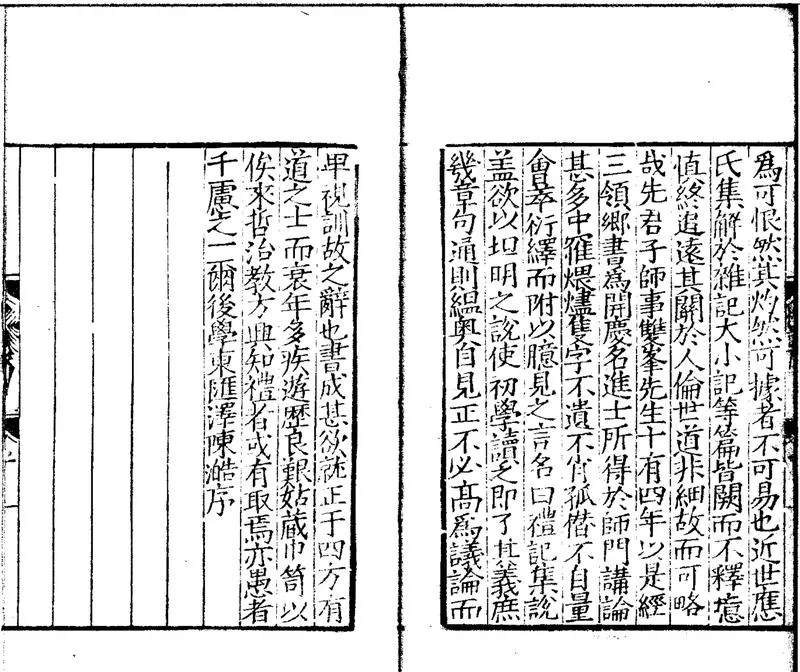 爲可恨然其灼然可據者不可易也近世應
氏集解於雜記大小記等篇皆闕而不釋噫
慎終追遠其關於人倫世道非細故而可略
哉先君子師事雙峯先生十有四年以是經
三領鄉書爲開慶名進士所得於師門講論
甚多中罹煨燼隻字不遺不肖孤僭不自量
會萃衍繹而附以臆見之言名曰禮記集說
盖欲以坦明之說使初學讀之即了其義庶
幾章句通則緼奥自見正不必髙爲議論而
卑視訓故之辭也書成甚欲就正于四方有
道之士而衰年多疾遊歷良艱姑藏巾笥以
俟來哲治教方興知禮者或有取焉亦愚者
千慮之一爾後學東匯澤陳澔序